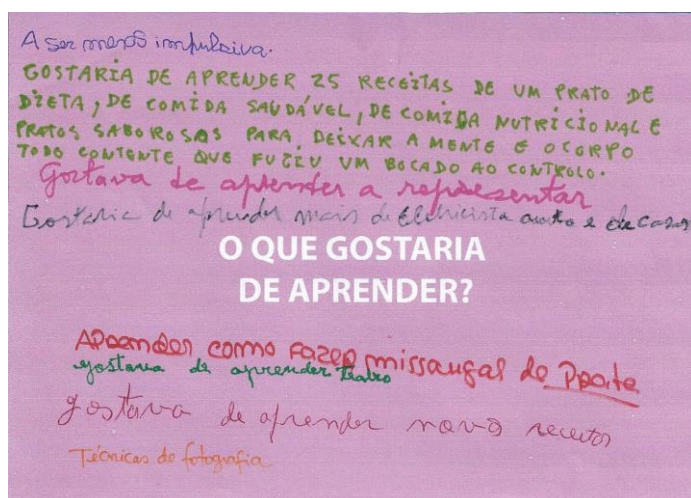 A ser menos impulsiva.
GOSTARIA DE APRENDER 25 RECEITAS DE UM PRATO DE
DIETA, DE COMIDA SAUDÁVEL, DE COMIDA NUTRICIONAL E
PRATOS SABOROSOS PARA DEIXAR A MENTE E O CORPO
TODO CONTENTE QUE FUGIU UM BOCADO AO CONTROLO.
Gostava de aprender a representar
Gostaria de aprender mais de Eletricista auto e de casas
O QUE GOSTARIA
DE APRENDER?
Aprender como fazer missangas de
gostava de aprender teatro
gostava de aprender novas receitas
Técnicas de fotografia